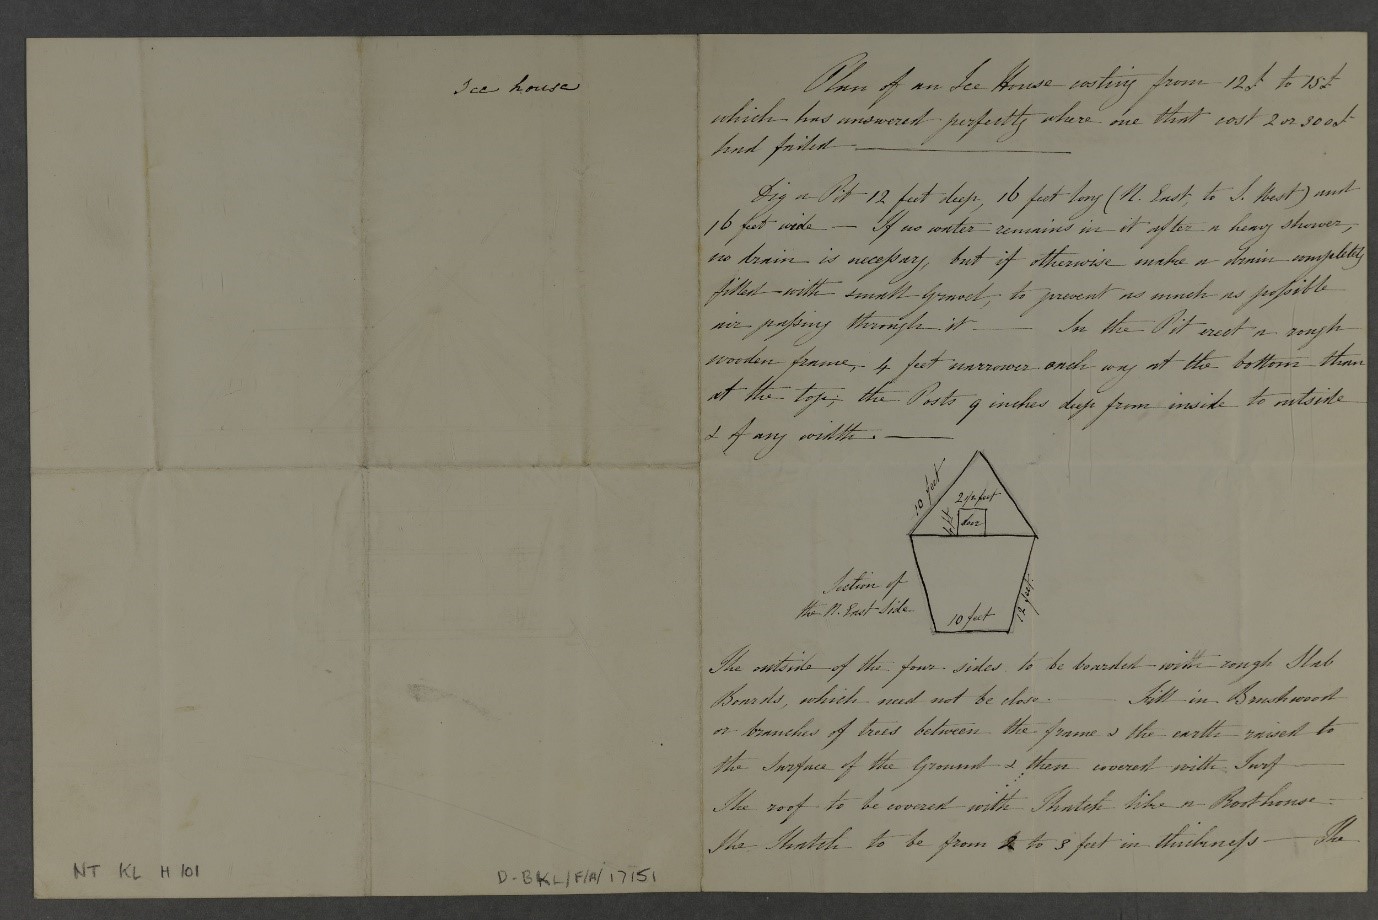 Ice house
NT KL H 101
D-BKL/F/A/17151
Plan of an Ice House costing from 12£ to 15£
which has answered perfectly where one that cost 2 or 300£
had failed
Dig a Pit 12 feet deep, 16 feet long (N. East, to S. West) and
16 feet wide — If no water remains in it after a heavy shower,
no drain is necessary, but if otherwise make a drain completely
filled with small Gravel, to prevent as much as possible
air passing through it — In the Pit erect a rough
wooden frame, 4 feet narrower each way at the bottom than
at the top; the Posts 9 inches deep from inside to outside
& of any width. —
10 feet
2 1/2 feet
4 ft
door
Section of
the N. East Side
10 feet
12 feet
The outside of the four sides to be boarded with rough Slab
Boards, which need not be close — Fill in Brushwood
or branches of trees between the frame & the earth raised to
the Surface of the Ground & then covered with Turf —
The roof to be covered with Thatch like a Boothouse —
The Thatch to be from 2 to 3 feet in thickness — The